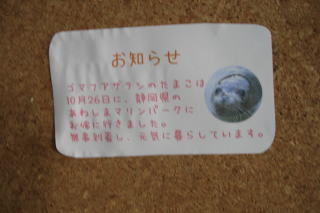 お知らせ
ゴマフアザラシのたまこは
10月26日に、静岡県の
あわしまマリンパークに
お嫁に行きました。
無事到着し、元気に暮らしています。